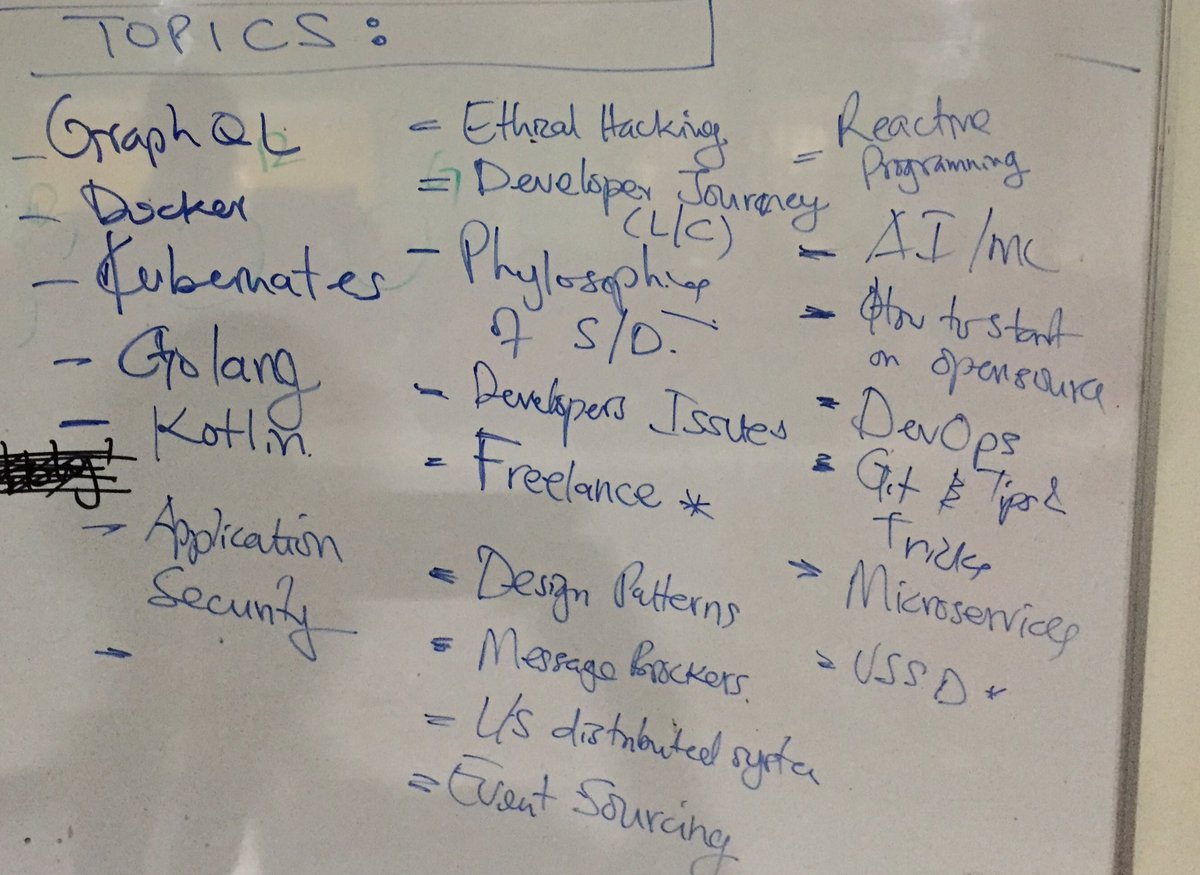 TOPICS:
- GraphQL
- Docker
- Kubernates
- Golang
- Kotlin
- Application
Security
-
= Ethical Hacking
= Developer Journey
(L/C)
- Phylosophies
of S/D.
- Developers Issues
= Freelance *
= Design Patterns
= Message Brockers.
= U/S distributed syste
= Event Sourcing
= Reactive
Programming
= AI/ML
= How to start
on opensource
= DevOps
= Git & Tips &
Tricks
= Microservices
= USSD *